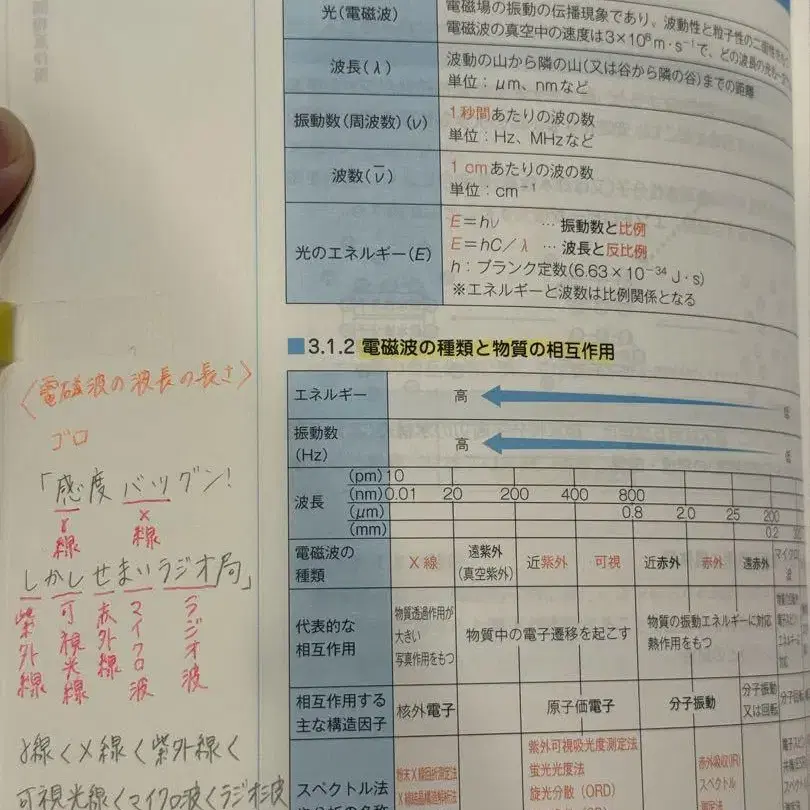 光(電磁波)
電磁場の振動の伝播現象であり。波動性と粒子性の二
電磁波の真空中の速度は3×10⁸m・s⁻¹で、どの波長の光も
波長(λ)
波動の山から隣の山(又は谷から隣の谷)までの距離
単位:μm、nmなど
振動数(周波数)(ν)
1秒間あたりの波の数
単位:Hz、MHzなど
波数(ν̅)
1 cmあたりの波の数
単位:cm⁻¹
光のエネルギー(E)
E=hν …振動数と比例
E=hC/λ …波長と反比例
h:プランク定数(6.63×10⁻³⁴ J・s)
※エネルギーと波数は比例関係となる
■3.1.2 電磁波の種類と物質の相互作用
エネルギー 高 低
振動数
(Hz) 高 低
波長
(pm) 10
(nm) 0.01 20 200 400 800
(μm) 0.8 2.0 25 200
(mm) 0.2
電磁波の
種類
X線
遠紫外
(真空紫外)
近紫外
可視
近赤外
赤外
遠赤外
マイクロ
波
代表的な
相互作用
物質透過作用が
大きい
写真作用をもつ
物質中の電子遷移を起こす
物質の振動エネルギーに対応
熱作用をもつ
相互作用する
主な構造因子
核外電子
原子価電子
分子振動
分子振動
又は回転
分子回転
スペクトル法
粉末X線回折測定法
X線結晶構造解析法
紫外可視吸光度測定法
蛍光光度法
旋光分散(ORD)
赤外吸収(IR)
スペクトル
測定法
〈電磁波の波長の長さ〉
ゴロ
「感度バツグン!
γ線
×線
しかしせまいラジオ局」
紫外線
可視光線
赤外線
マイクロ波
ラジオ波
γ線<×線<紫外線<
可視光線<マイクロ波<ラジオ波